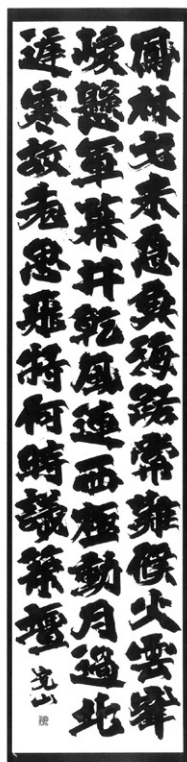 鳳林戈未息魚海路常難候火雲峯
峻懸軍幕井乾風連西極動月過北
庭寒故老思飛將何時議築壇